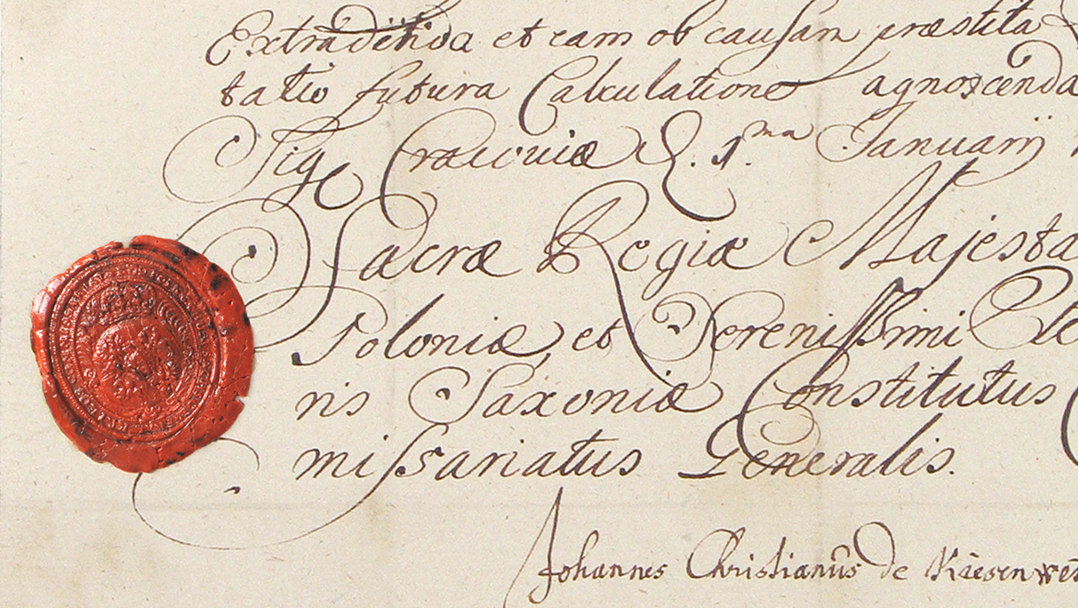 Extradenda et eam ob causam præstita
tatio futura Calculatione agnoscenda
Sig Cracoviæ d. 1.ma Januarij
Sacræ Regiæ Majesta
Poloniæ, et Serenissimi Ele
ris Saxoniæ Constitutus C
missariatus Generalis.
Johannes Christianus de